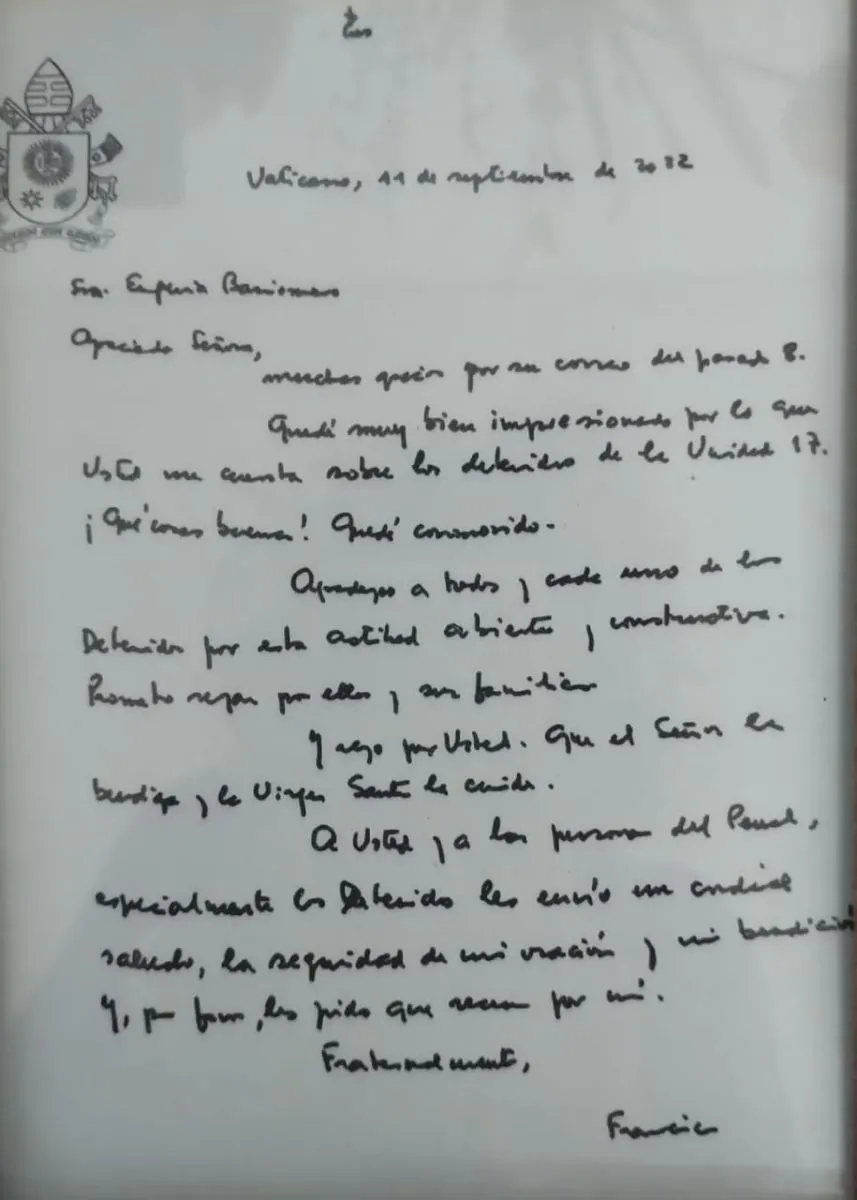 Vaticano, 11 de septiembre de 2022
Sra. Eugenia
Apreciada Señora,
muchas gracias por su correo del pasado 8.
Quedé muy bien impresionado por lo que
Usted me cuenta sobre los detenidos de la Unidad 17.
¡Qué cosas buenas! Quedé conmovido.
Agradezco a todos y cada uno de los
Detenidos por esta actitud abierta y constructiva.
Prometo rezar por ellos y sus familias
Y rezo por Usted. Que el Señor la
bendiga y la Virgen Santa la cuide.
A Usted y a las personas del Penal,
especialmente los Detenidos les envío un cordial
saludo, la seguridad de mi oración y mi bendición
Y, por favor, les pido que recen por mí.
Fraternalmente,
Francisco